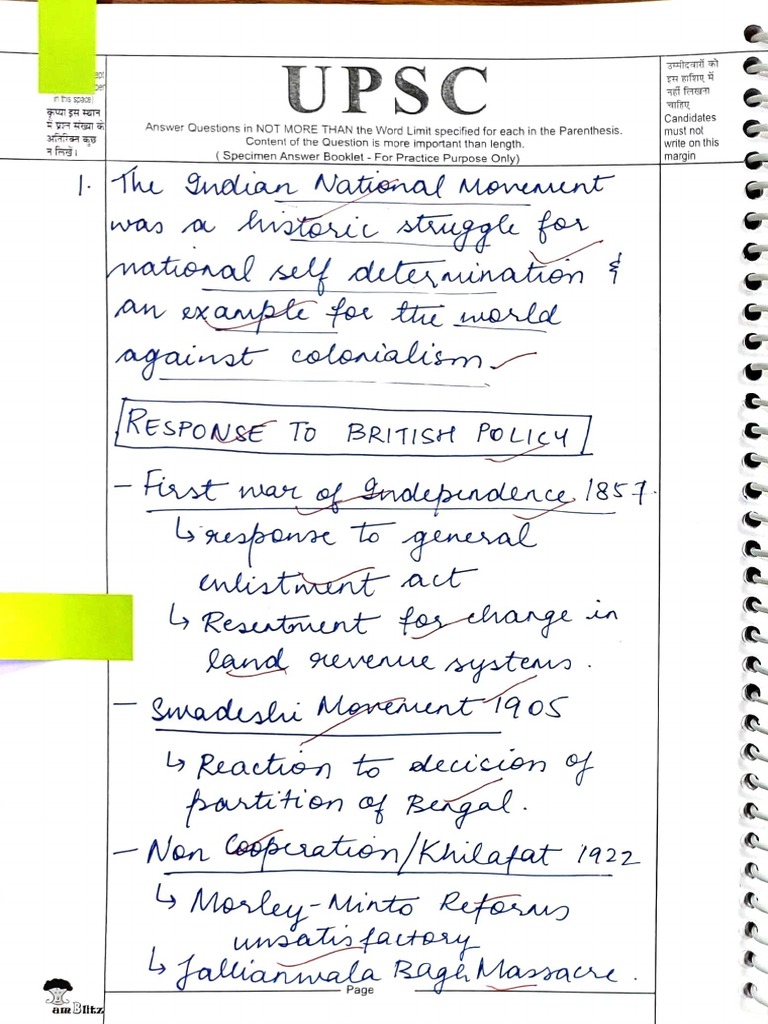 UPSC
Answer Questions in NOT MORE THAN the Word Limit specified for each in the Parenthesis.
Content of the Question is more important than length.
( Specimen Answer Booklet - For Practice Purpose Only)
in this space)
कृप्या इस स्थान
में प्रश्न संख्या के
अतिरिक्त कुछ
न लिखें।
उम्मीदवारों को
इस हाशिए में
नहीं लिखना
चाहिए
Candidates
must not
write on this
margin
1. The Indian National Movement
was a historic struggle for
national self determination &
an example for the world
against colonialism.
RESPONSE TO BRITISH POLICY
- First war of Independence 1857.
↳ response to general
enlistment act
↳ Resentment for change in
land revenue systems.
- Swadeshi Movement 1905
↳ Reaction to decision of
partition of Bengal.
- Non Cooperation/Khilafat 1922
↳ Morley-Minto Reforms
unsatisfactory
↳ Jallianwala Bagh Massacre.
Page
am Blitz